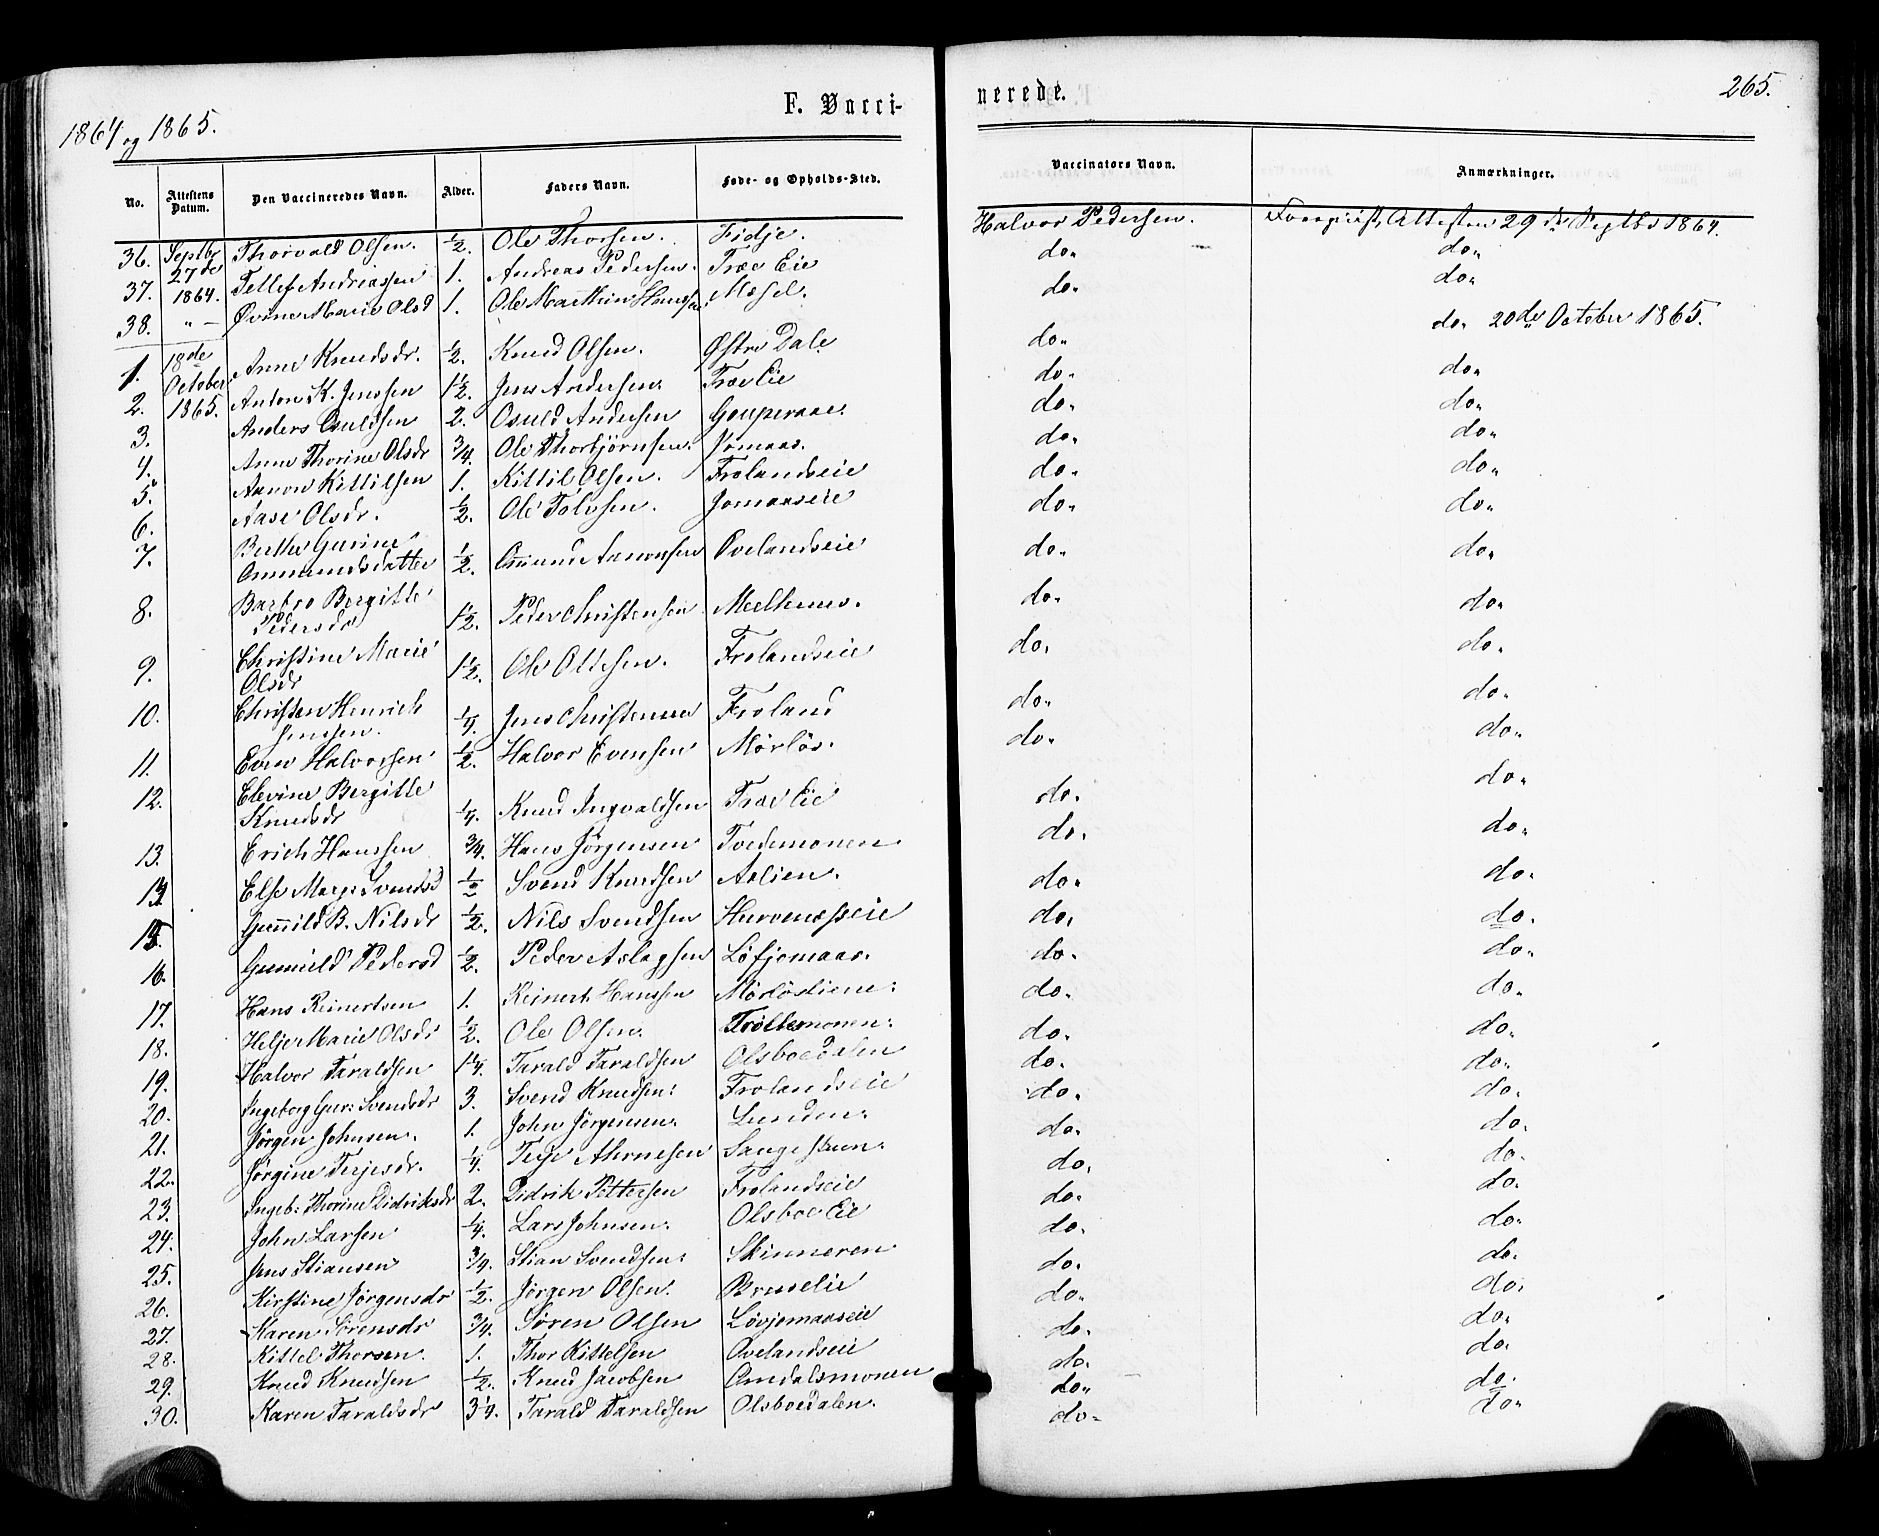 1864 og 1865.
F. Vacci-
nerede.
265.
No. Attestens Datum. Den Vaccineredes Navn. Alder. Faders Navn. Føde- og Opholds-Sted. Vaccinators Navn. Anmærkninger.
36. Septbr Thorvald Olsen. ½. Ole Thorsen. Fidje. Halvor Pedersen. Attesten 29de Septbr 1864.
37. 27de 1864. Tellef Andreassen 1. Andreas Pedersen. Træe Eie do. do.
38. " — Øvine Marie Olsd 1. Ole Marthin Hanssen Mosel. do. do.
1. 18de Anne Knudsdr. ½. Knud Olsen. Østre Dale do. do. 20de October 1865.
2. October Anton K. Jenssen 1½. Jens Andersen. Træe Eie do. do.
3. 1865. Anders Osuldsen 2. Osuld Andersen do. do.
4. Anne Thorine Olsdr ¾. Ole Thorbjørnsen. Jomaas. do. do.
5. Aanon Kittilsen 1. Kittil Olsen. Frolandseie do. do.
6. Aase Olsdr. ½. Ole Tolvsen. Jomaaseie do. do.
7. Berthe Gurine
Ommundsdatter ½. Ommund Aanonsen Ovelandseie do. do.
8. Barbro Bergitte
Pedersdr 1½. Peder Christensen Mælhuus. do. do.
9. Christine Marie
Olsdr 1½. Ole Ottesen. Frolandseie do. do.
10. Christen Henrich
Jenssen. ¼. Jens Christensen Froland do. do.
11. Even Halvorsen ½. Halvor Evensen Mørløs. do. do.
12. Elevine Bergitte
Knudsdr ¼. Knud Ingvaldsen Træe Eie do. do.
13. Erich Hanssen ¾. Hans Jørgensen Tvedemonen do. do.
14. Else Marg: Svendsd ½ Svend Knudsen Aslien. do. do.
15. Gunnild B. Nilsdr ½. Nils Svendsen Hurvenæseie do. do.
16. Gunnild Pedersd ½. Peder Aslagsen Løfjomaas. do. do.
17. Hans Reinertsen 1. Reinert Hanssen do. do.
18. Helje Marie Olsdr ½. Ole Olsen. Trøllemonen. do. do.
19. Halvor Taraldsen 1¼. Tarald Taraldsen Olsboedalen do. do.
20. Ingeborg Gur: Svendsdr 3. Svend Knudsen. Frolandseie do. do.
21. Jørgen Johnsen. 1. John Jørgensen. Lunden. do. do.
22. Jørgine Terjesdr. ¼. Terje do. do.
23. Ingeb: Thorine Didriksdr 2. Didrik Pettersen Frolandseie do. do.
24. John Larsen ¼. Lars Johnsen. Olsboe Eie do. do.
25. Jens Stiansen ¾. Stian Svendsen. Skinneren do. do.
26. Kirstine Jørgensdr ½. Jørgen Olsen. Bruseeie do. do.
27. Karen Sørensdr ¾. Søren Olsen Løvjomaaseie do. do.
28. Kittel Thorsen. 1. Thor Kittelsen Ovelandseie do. do.
29. Knud Knudsen ½. Knud Jacobsen Omdalsmonen do. do.
30. Karen Taraldsdr 3¼. Tarald Taraldsen Olsboedalen. do. do.